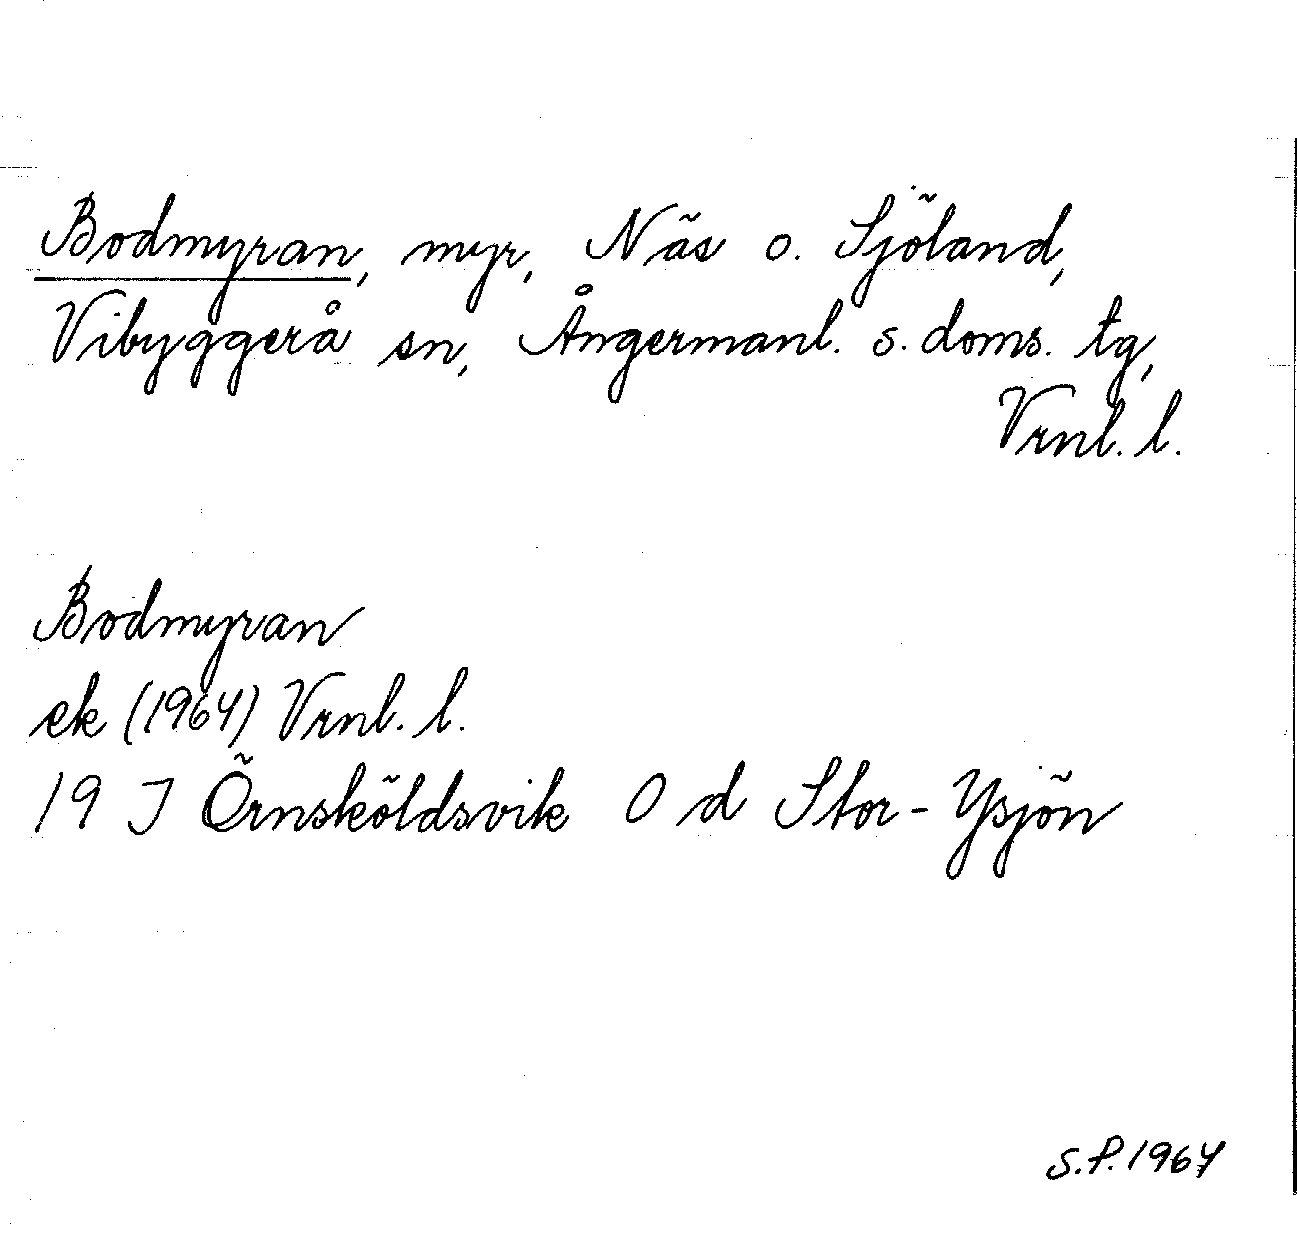 Bodmyran, myr, Näs o. Sjöland,
Vibyggerå sn, Ångermanl. s. doms. tg,
Vrnl. l.
Bodmyran
ek (1964) Vrnl. l.
19 J Örnsköldsvik O d Stor-Ysjön
S.P. 1964